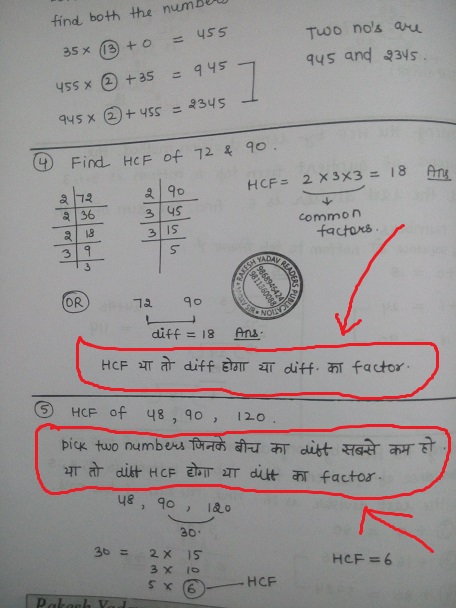 find both the numbers
35 × 13 + 0 = 455
455 × 2 + 35 = 945
945 × 2 + 455 = 2345
Two no's are
945 and 2345.
4 Find HCF of 72 & 90.
2 72
2 36
2 18
3 9
3
2 90
3 45
3 15
5
HCF = 2 × 3 × 3 = 18 Ans
common
factors.
RAKESH YADAV READERS PUBLICATION
OR 72 90
diff = 18 Ans.
HCF या तो diff होगा या diff. का factor.
5 HCF of 48, 90, 120.
Pick two numbers जिनके बीच का diff सबसे कम हो
या तो diff HCF होगा या diff का factor.
48, 90, 120
30.
30 = 2 × 15
3 × 10
5 × 6 HCF
HCF = 6
Rakesh Yadav